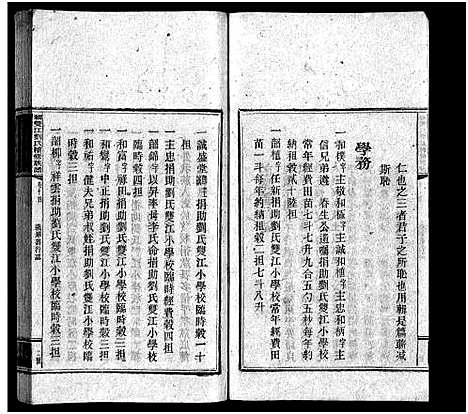 仁也之三者君子之所恥也用斬是篇聊減
斯恥
學務
和樸字主敬和極字主誠和植字主忠和柄字主
信兄弟遵 春生公遺囑捐助劉氏雙江小學校
常年經費田苗七斗七升九合五勺五秒每年約
納租穀貳十陸担
一韶植字任新捐助劉氏雙江小學校常年經費田
苗一斗每年約納租穀二担七斗八升
一誠盛堂 捐助劉氏雙江小學校臨時穀一十
担
一主忠捐助劉氏雙江小學校臨時經費穀四担
一韶錦字以昇承 李氏命捐助劉氏雙江小學校
臨時穀四担
一和富字 捐助劉氏雙江小學校臨時穀三担
一和 字健夫兄弟叔姪捐助劉氏雙江小學校臨
時穀三担
一韶柳字祥雲捐助劉氏雙江小學校臨時穀三担
雙江劉氏 修族譜